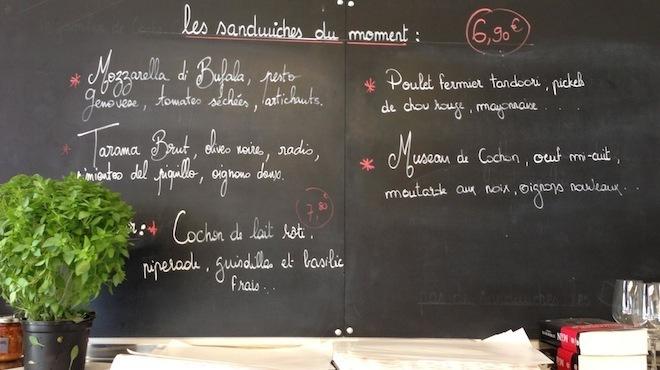 les sandwiches du moment :
6,90€
* Mozzarella di Bufala, pesto
genovese, tomates séchées, artichauts.
* Tarama Brut, olives noires, radis,
pimientos del piquillo, oignons doux.
7,80€
* Cochon de lait rôti,
piperade, guindillas et basilic
frais...
* Poulet fermier tandoori, pickels
de chou rouge, mayonnaise....
* Museau de Cochon, oeuf mi-cuit,
moutarde aux noix, oignons nouveaux...
pas de sandwiches les